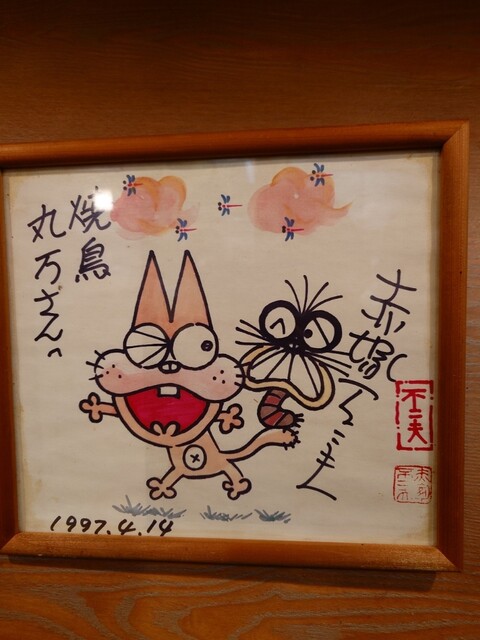 焼鳥
丸万さんへ
赤塚
不二夫
1997.4.14